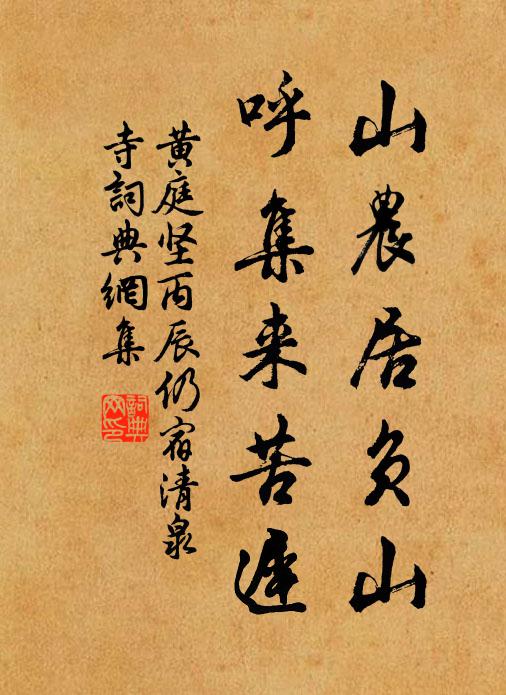 山農居負山
呼集来苦遲
黄庭坚丙辰仍宿清泉
寺詞典網集
詞典
网印